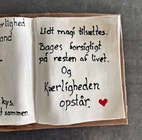 rlighed
and
kys.
t sommer.
Lidt magi tilsættes.
Bages forsigtigt
på resten af livet.
Og
Kærligheden
opstår